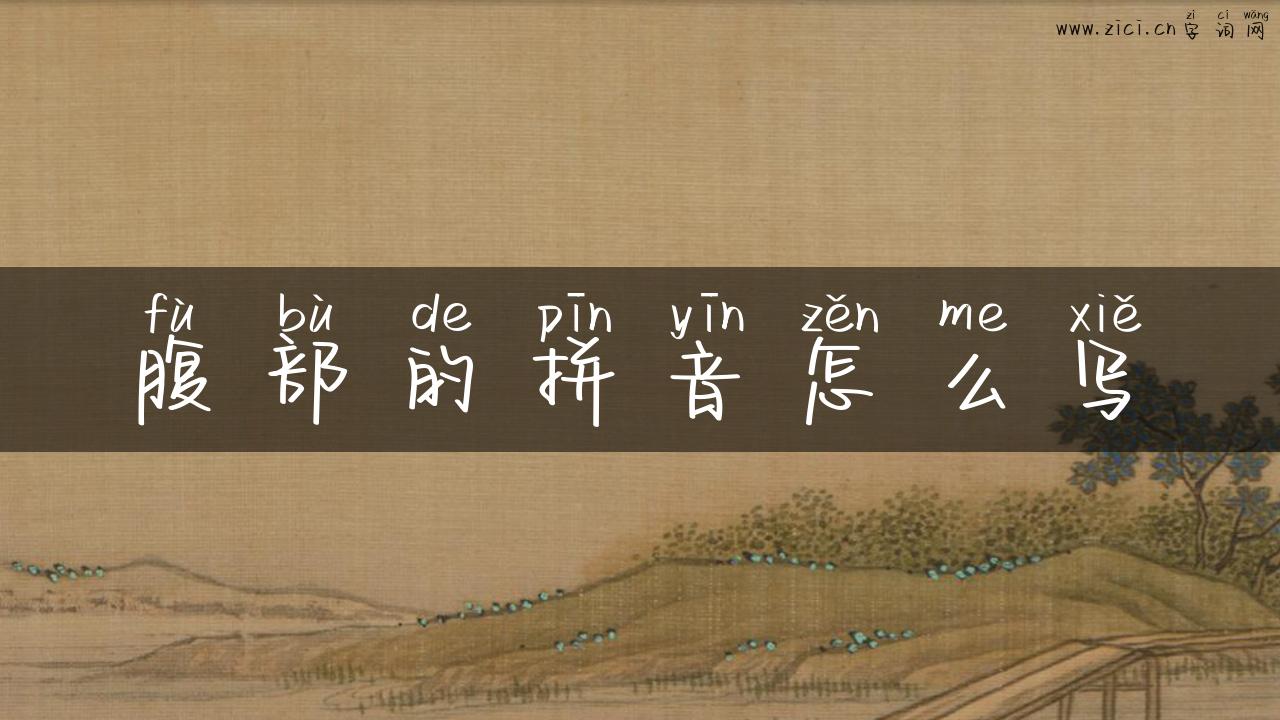 zì cí wǎng
www.zici.cn字词网
fù bù de pīn yīn zěn me xiě
腹部的拼音怎么写